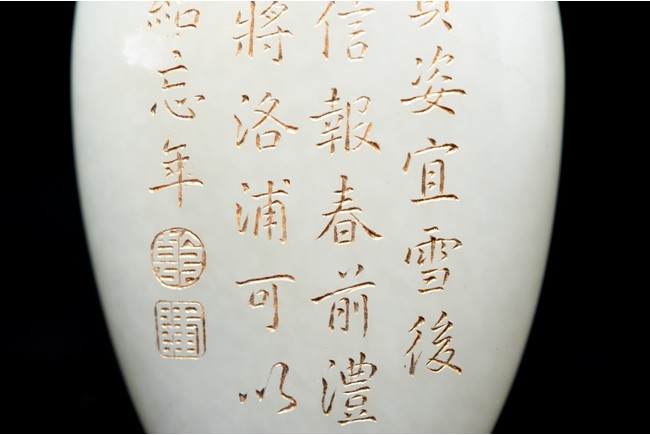 姿宜雪後
信報春前澧
將洛浦可以
忘年